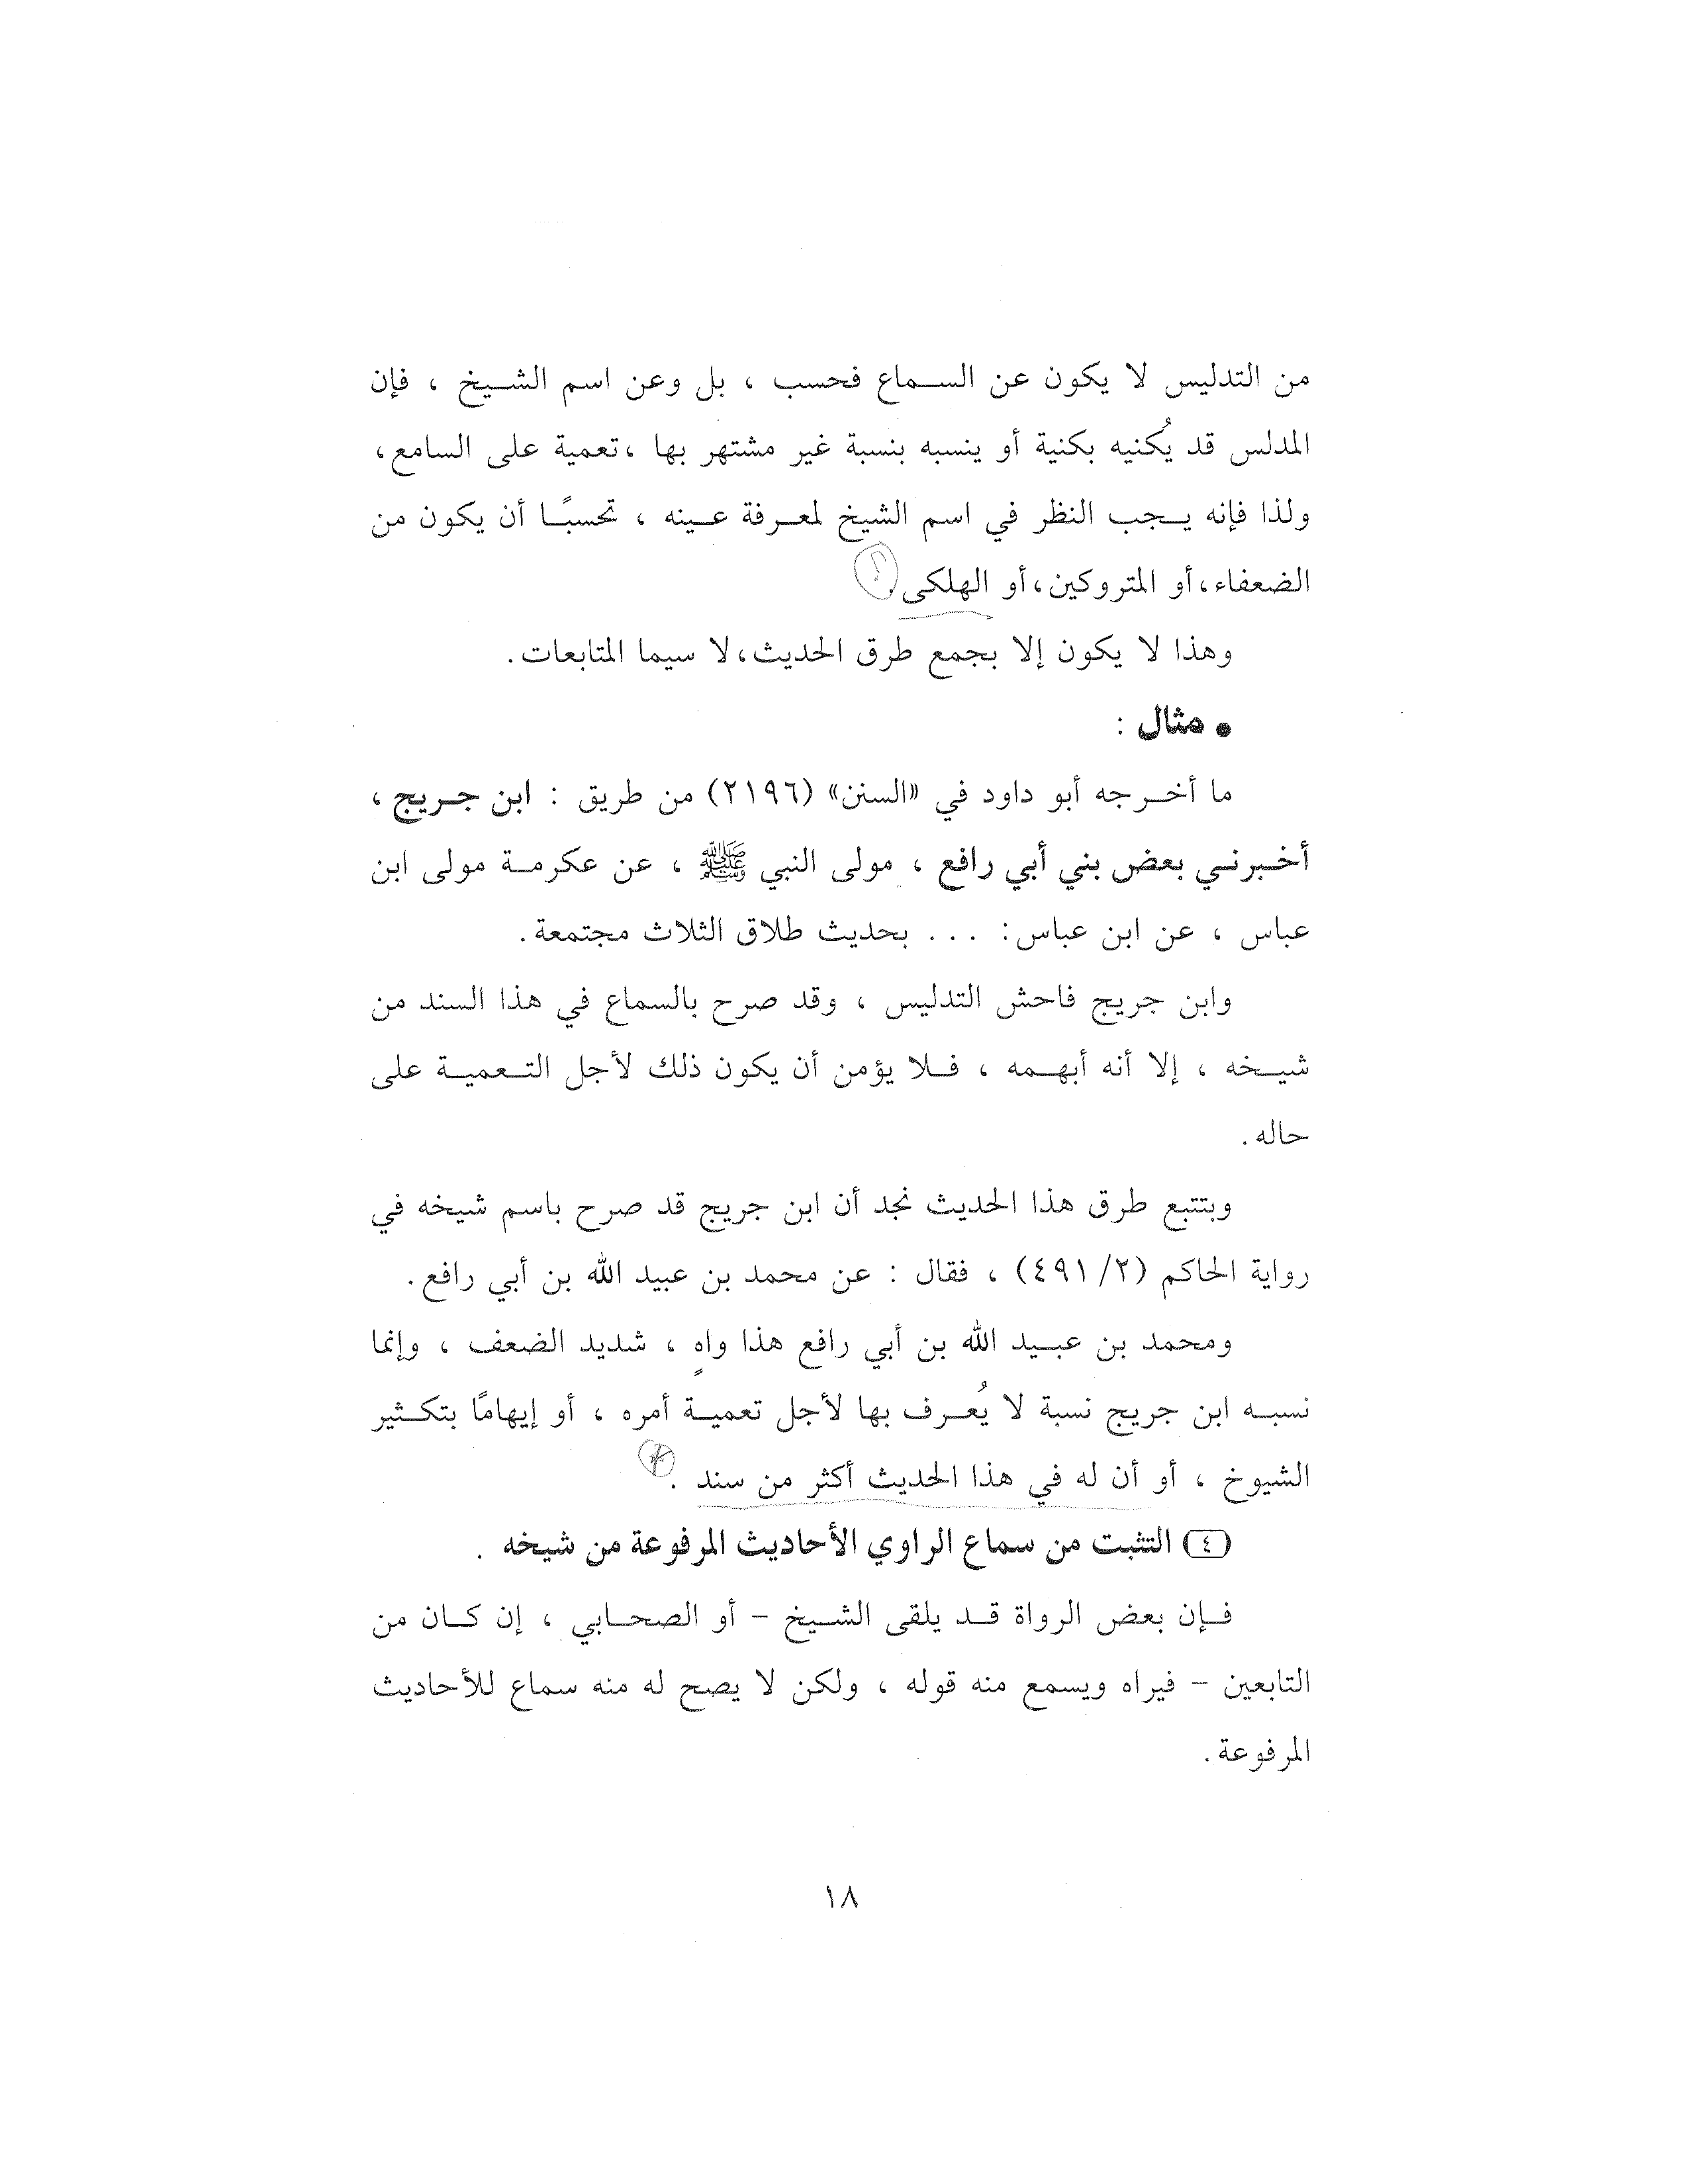 من التدليس لا يكون عن السماع فحسب ، بل وعن اسم الشيخ ، فإن
المدلس قد يُكنيه بكنية أو ينسبه بنسبة غير مشتهر بها ،تعمية على السامع،
ولذا فإنه يجب النظر في اسم الشيخ لمعرفة عينه ، تحسبًا أن يكون من
الضعفاء،أو المتروكين،أو الهلكى.
وهذا لا يكون إلا بجمع طرق الحديث،لا سيما المتابعات.
• مثال :
ما أخرجه أبو داود في «السنن» (٢١٩٦) من طريق : ابن جريج ،
أخبرني بعض بني أبي رافع ، مولى النبي ﷺ ، عن عكرمة مولى ابن
عباس ، عن ابن عباس: . . . بحديث طلاق الثلاث مجتمعة.
وابن جريج فاحش التدليس ، وقد صرح بالسماع في هذا السند من
شيخه ، إلا أنه أبهمه ، فلا يؤمن أن يكون ذلك لأجل التعمية على
حاله.
وبتتبع طرق هذا الحديث نجد أن ابن جريج قد صرح باسم شيخه في
رواية الحاكم (٢/ ٤٩١) ، فقال : عن محمد بن عبيد الله بن أبي رافع.
ومحمد بن عبيد الله بن أبي رافع هذا واهٍ ، شديد الضعف ، وإنما
نسبه ابن جريج نسبة لا يُعرف بها لأجل تعمية أمره ، أو إيهامًا بتكثير
الشيوخ ، أو أن له في هذا الحديث أكثر من سند .
(٤) التثبت من سماع الراوي الأحاديث المرفوعة من شيخه .
فإن بعض الرواة قد يلقى الشيخ - أو الصحابي ، إن كان من
التابعين - فيراه ويسمع منه قوله ، ولكن لا يصح له منه سماع للأحاديث
المرفوعة.
١٨